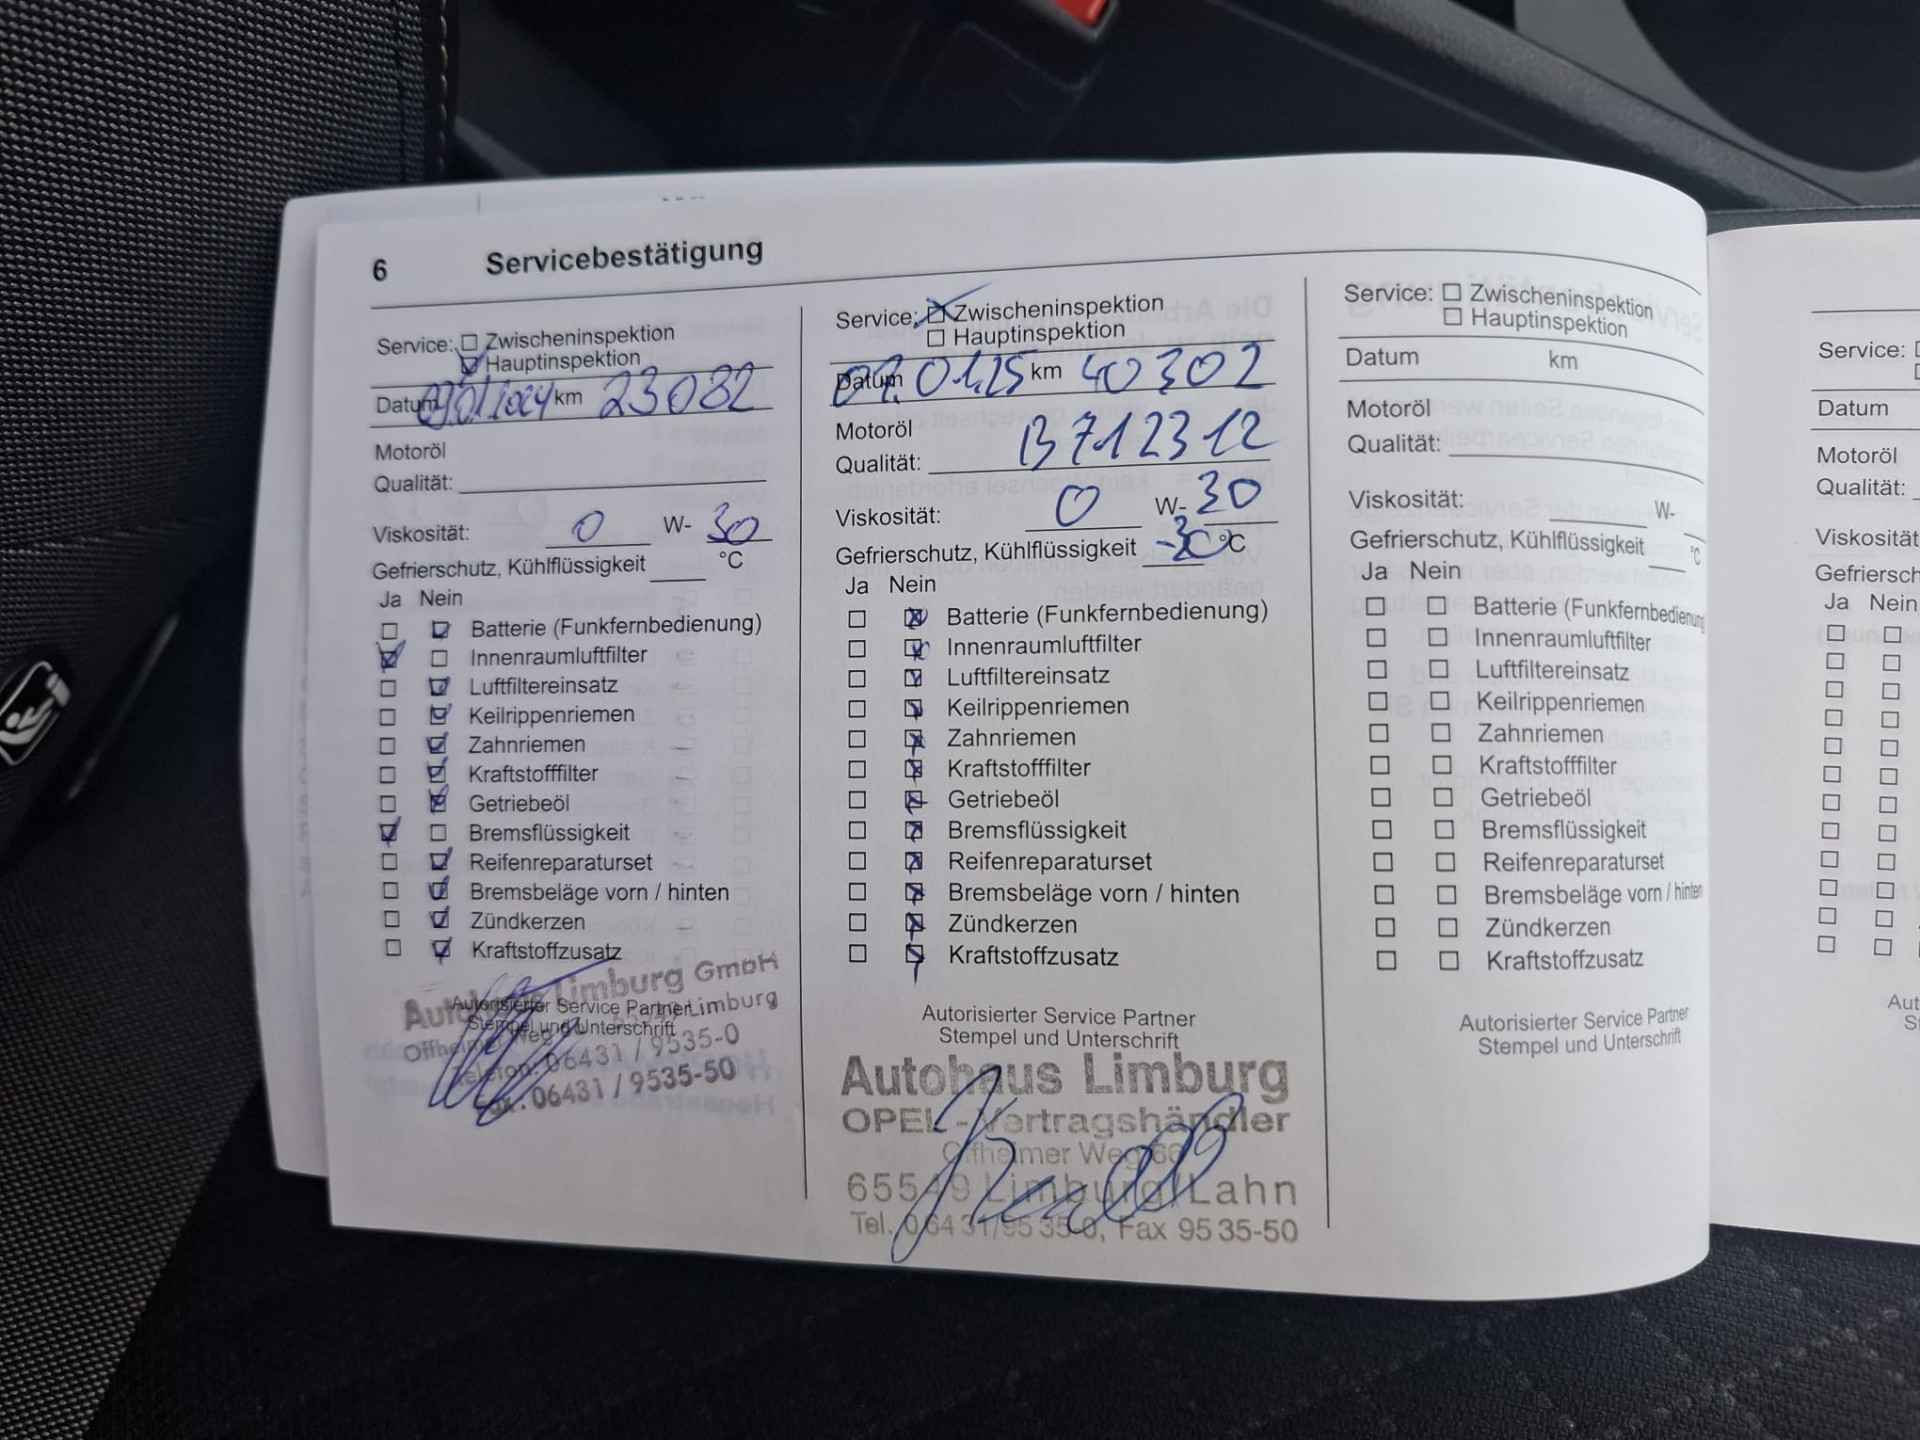 6 Servicebestätigung
Service: Zwischeninspektion
Hauptinspektion
Datum 09.01.2024 km 23082
Motoröl
Qualität:
Viskosität: 0 W- 30
Gefrierschutz, Kühlflüssigkeit °C
Ja Nein
Batterie (Funkfernbedienung)
Innenraumluftfilter
Luftfiltereinsatz
Keilrippenriemen
Zahnriemen
Kraftstofffilter
Getriebeöl
Bremsflüssigkeit
Reifenreparaturset
Bremsbeläge vorn / hinten
Zündkerzen
Kraftstoffzusatz
Autohaus Limburg GmbH
Autorisierter Service Partner
Limburg
Stempel und Unterschrift
Offheimer Weg
Telefon: 06431 / 9535-0
Fax: 06431 / 9535-50
Service: Zwischeninspektion
Hauptinspektion
Datum 07.01.25 km 40302
Motoröl
Qualität: B712312
Viskosität: 0 W- 30
Gefrierschutz, Kühlflüssigkeit -30 °C
Ja Nein
Batterie (Funkfernbedienung)
Innenraumluftfilter
Luftfiltereinsatz
Keilrippenriemen
Zahnriemen
Kraftstofffilter
Getriebeöl
Bremsflüssigkeit
Reifenreparaturset
Bremsbeläge vorn / hinten
Zündkerzen
Kraftstoffzusatz
Autorisierter Service Partner
Stempel und Unterschrift
Autohaus Limburg
OPEL - Vertragshändler
Offheimer Weg 66
65549 Limburg/Lahn
Tel. 06431/9535-0, Fax 9535-50
Service: Zwischeninspektion
Hauptinspektion
Datum km
Motoröl
Qualität:
Viskosität: W-
Gefrierschutz, Kühlflüssigkeit °C
Ja Nein
Batterie (Funkfernbedienung
Innenraumluftfilter
Luftfiltereinsatz
Keilrippenriemen
Zahnriemen
Kraftstofffilter
Getriebeöl
Bremsflüssigkeit
Reifenreparaturset
Bremsbeläge vorn / hinten
Zündkerzen
Kraftstoffzusatz
Autorisierter Service Partner
Stempel und Unterschrift
Service:
Datum
Motoröl
Qualität:
Viskosität
Gefriersch
Ja Nein
Aut
S